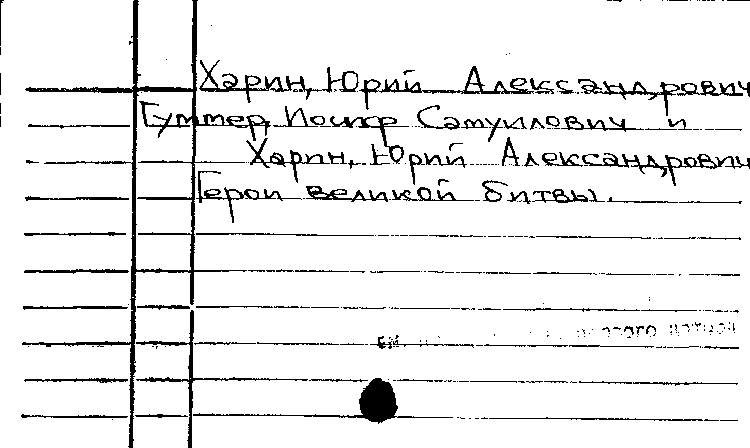 Харин, Юрий Александрович
Гуттер, Иосиф Самуилович и
Харин, Юрий Александрович
Герои великой битвы.